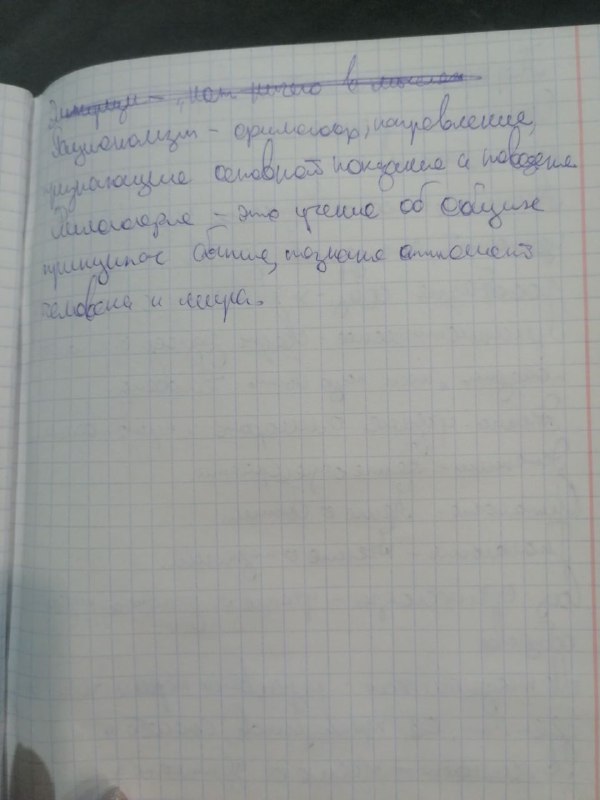 Эмпиризм - нет ничего в
Рационализм - философ, направление,
признающие основной познание и поведения
Философия - это учение об общих
принципах бытия, познания отношений
человека и мира.